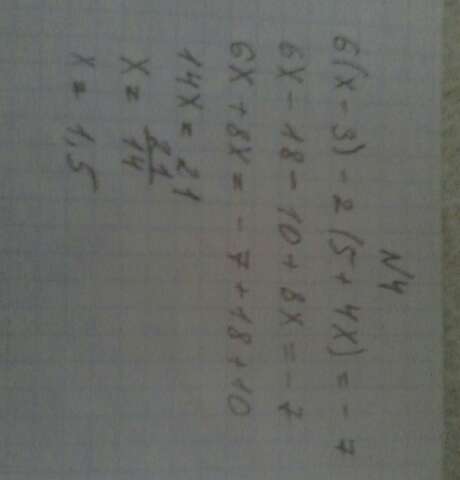 N4
6(x - 3) - 2(5 + 4x) = - 7
6x - 18 - 10 + 8x = - 7
6x + 8x = - 7 + 18 + 10
14x = 21
x = 21/14
x = 1,5